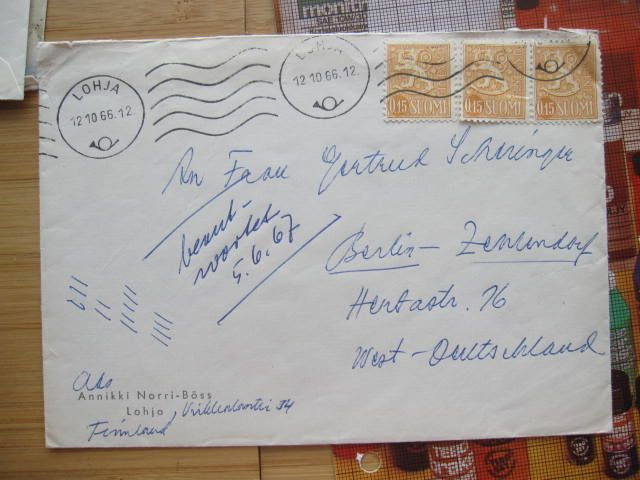 LOHJA
12.10.66.12.
LOHJA
12.10.66.12.
0.15 SUOMI
0.15 SUOMI
0.15 SUOMI
An Frau Gertrud Scheringer
beant-
wortet
5.6.67
Berlin-Zehlendorf
Herbastr. 76
West-Deutschland
Abs
Annikki Norri-Böss
Lohja
34
Finnland